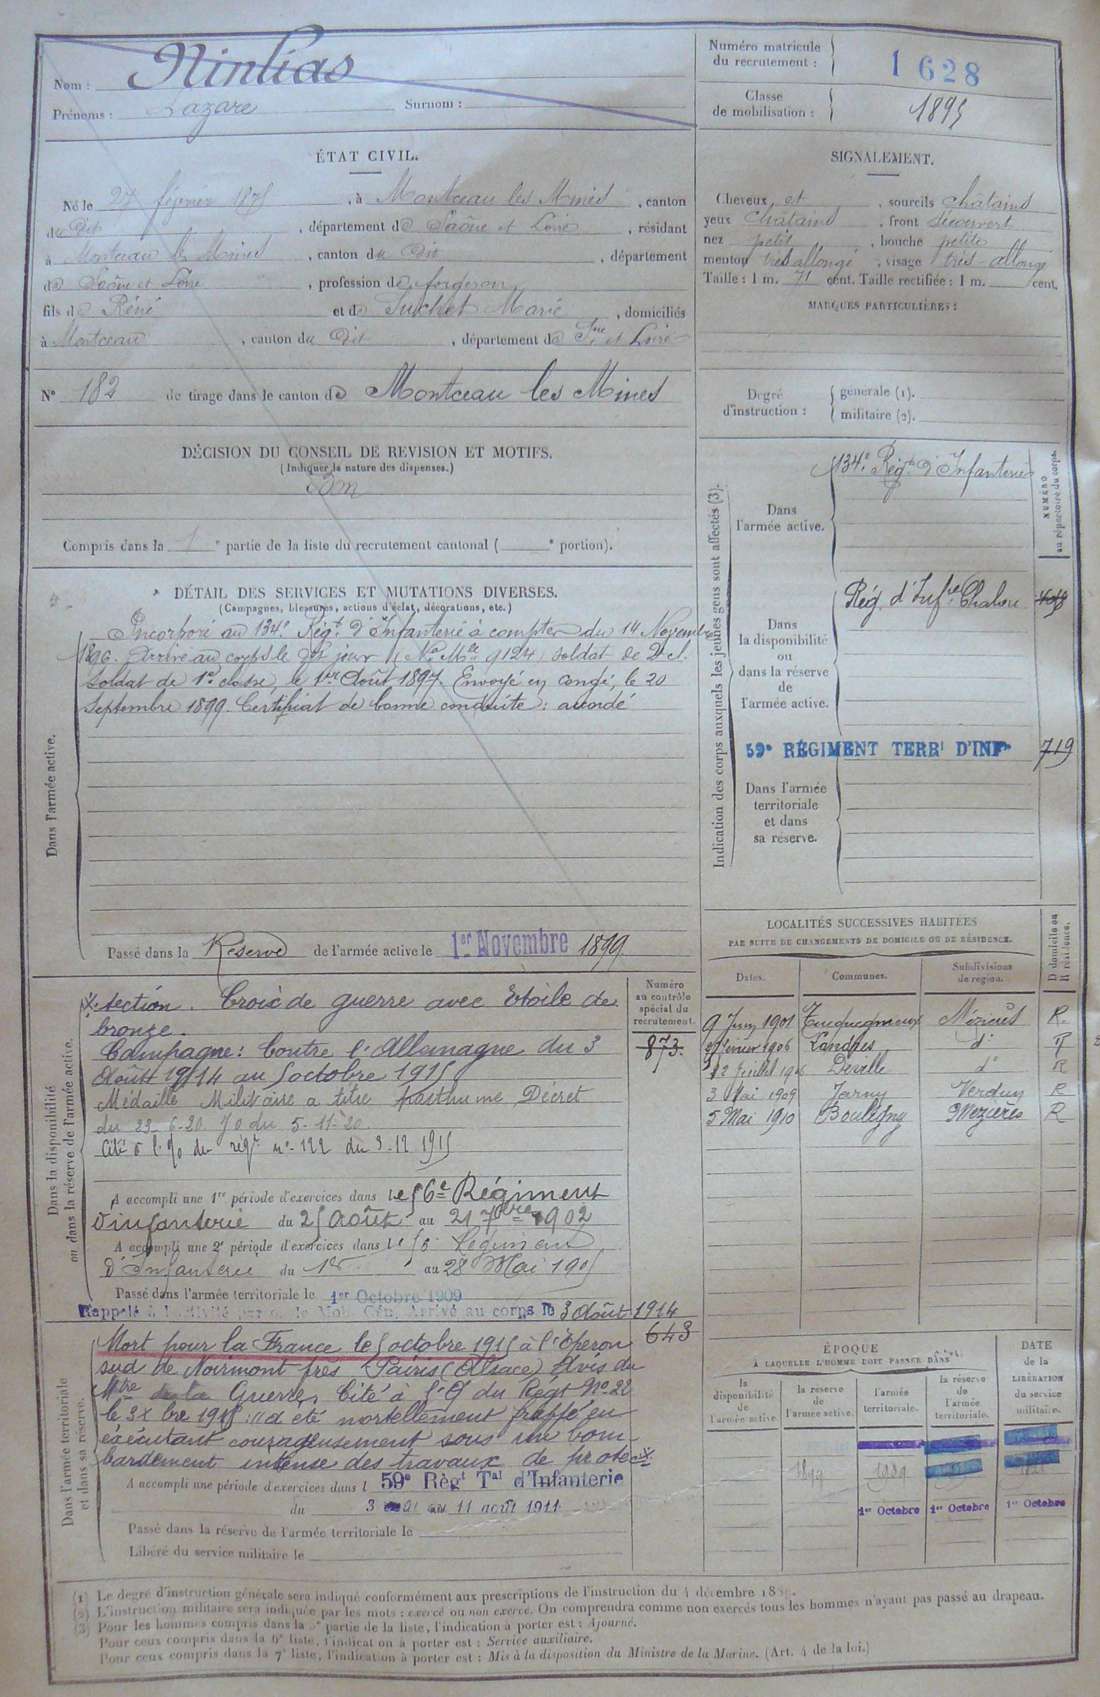 Nom : Ninlias
Prénoms : Lazare Surnom :
Numéro matricule
du recrutement : 1628
Classe
de mobilisation : 1895
ÉTAT CIVIL.
Né le 27 février 1875, à Montceau les Mines, canton
du Dit, département de Saône et Loire, résidant
à Montceau les Mines, canton du Dit, département
de Saône et Loire, profession de forgeron
fils de Réné et de Suchet Marie, domiciliés
à Montceau, canton du Dit, département de Sne et Loire
N° 182 de tirage dans le canton de Montceau les Mines
SIGNALEMENT.
Cheveux et sourcils châtains
yeux châtains, front découvert
nez petit, bouche petite
menton très allongé, visage très allongé
Taille : 1 m. 71 cent. Taille rectifiée : 1 m. cent.
MARQUES PARTICULIÈRES :
Degré
d'instruction :
générale (1).
militaire (2).
DÉCISION DU CONSEIL DE REVISION ET MOTIFS.
(Indiquer la nature des dispenses.)
Bon
Compris dans la 1e partie de la liste du recrutement cantonal ( e portion).
DÉTAIL DES SERVICES ET MUTATIONS DIVERSES.
(Campagnes, blessures, actions d'éclat, décorations, etc.)
Dans l'armée active.
Incorporé au 134e Régt d'Infanterie à compter du 14 Novembre
1896. Arrivé au corps le dit jour (No Mle 9124) soldat de 2e cl.
Soldat de 1e classe, le 1er Août 1897. Envoyé en congé, le 20
Septembre 1899. Certificat de bonne conduite : accordé
Passé dans la Réserve de l'armée active le 1er Novembre 1899
Indication des corps auxquels les jeunes gens sont affectés (3).
NUMÉRO
au répertoire du corps.
Dans
l'armée active.
134e Régt d'Infanterie
Dans
la disponibilité
ou
dans la réserve
de
l'armée active.
Rég. d'Infie Chalon
59e RÉGIMENT TERRl D'INFie 719
Dans l'armée
territoriale
et dans
sa réserve.
Dans la disponibilité
ou dans la réserve de l'armée active.
Numéro
au contrôle
spécial du
recrutement.
873.
section. Croix de guerre avec Etoile de
bronze.
Campagne : Contre l'Allemagne du 3
Août 1914 au 5 octobre 1915
Médaille Militaire a titre posthume Décret
du 23-6-20. JO du 5-11-20
Cité à l'O du régt n° 122 du 3.12.1915
A accompli une 1re période d'exercices dans le 56e Régiment
d'infanterie du 25 Août au 21 7bre 1902
A accompli une 2e période d'exercices dans le 56 Régiment
d'Infanterie du 1er au 28 Mai 1905
Passé dans l'armée territoriale le 1er Octobre 1909
Rappelé à l'activité Mob. Gén. Arrivé au corps le 3 Août 1914
Dans l'armée territoriale
et dans sa réserve.
643
Mort pour la France le 5 octobre 1915 à l'éperon
sud de Noirmont près Pairis (Alsace) Avis du
Mtre de la Guerre. Cité à l'O du Régt No 22
le 3 Xbre 1915 : "a été mortellement frappé en
exécutant courageusement sous un bom-
bardement intense des travaux de protec
A accompli une période d'exercices dans l 59e Règt Tal d'Infanterie
du 3 au 11 août 1911
Passé dans la réserve de l'armée territoriale le
Libéré du service militaire le
LOCALITÉS SUCCESSIVES HABITÉES
PAR SUITE DE CHANGEMENTS DE DOMICILE OU DE RÉSIDENCE.
Dates. Communes. Subdivisions
de région. D domicile ou
R résidence.
9 Juin 1901 Tucquegnieux Mézières R.
Février 1906 Landres do R
12 Juillet 1906 Deville do R
3 Mai 1909 Jarny Verdun R
5 Mai 1910 Bouligny Mézières R
ÉPOQUE
À LAQUELLE L'HOMME DOIT PASSER DANS
DATE
de la
LIBÉRATION
du service
militaire.
la
disponibilité
de
l'armée active.
la réserve
de
l'armée active.
l'armée
territoriale.
la réserve
de
l'armée
territoriale.
1899 1909
1er Octobre 1er Octobre 1er Octobre
(1) Le degré d'instruction générale sera indiqué conformément aux prescriptions de l'instruction du 4 décembre 1889.
(2) L'instruction militaire sera indiquée par les mots : exercé ou non exercé. On comprendra comme non exercés tous les hommes n'ayant pas passé au drapeau.
(3) Pour les hommes compris dans la 5e partie de la liste, l'indication à porter est : Ajourné.
Pour ceux compris dans la 6e liste, l'indication à porter est : Service auxiliaire.
Pour ceux compris dans la 7e liste, l'indication à porter est : Mis à la disposition du Ministre de la Marine. (Art. 4 de la loi.)